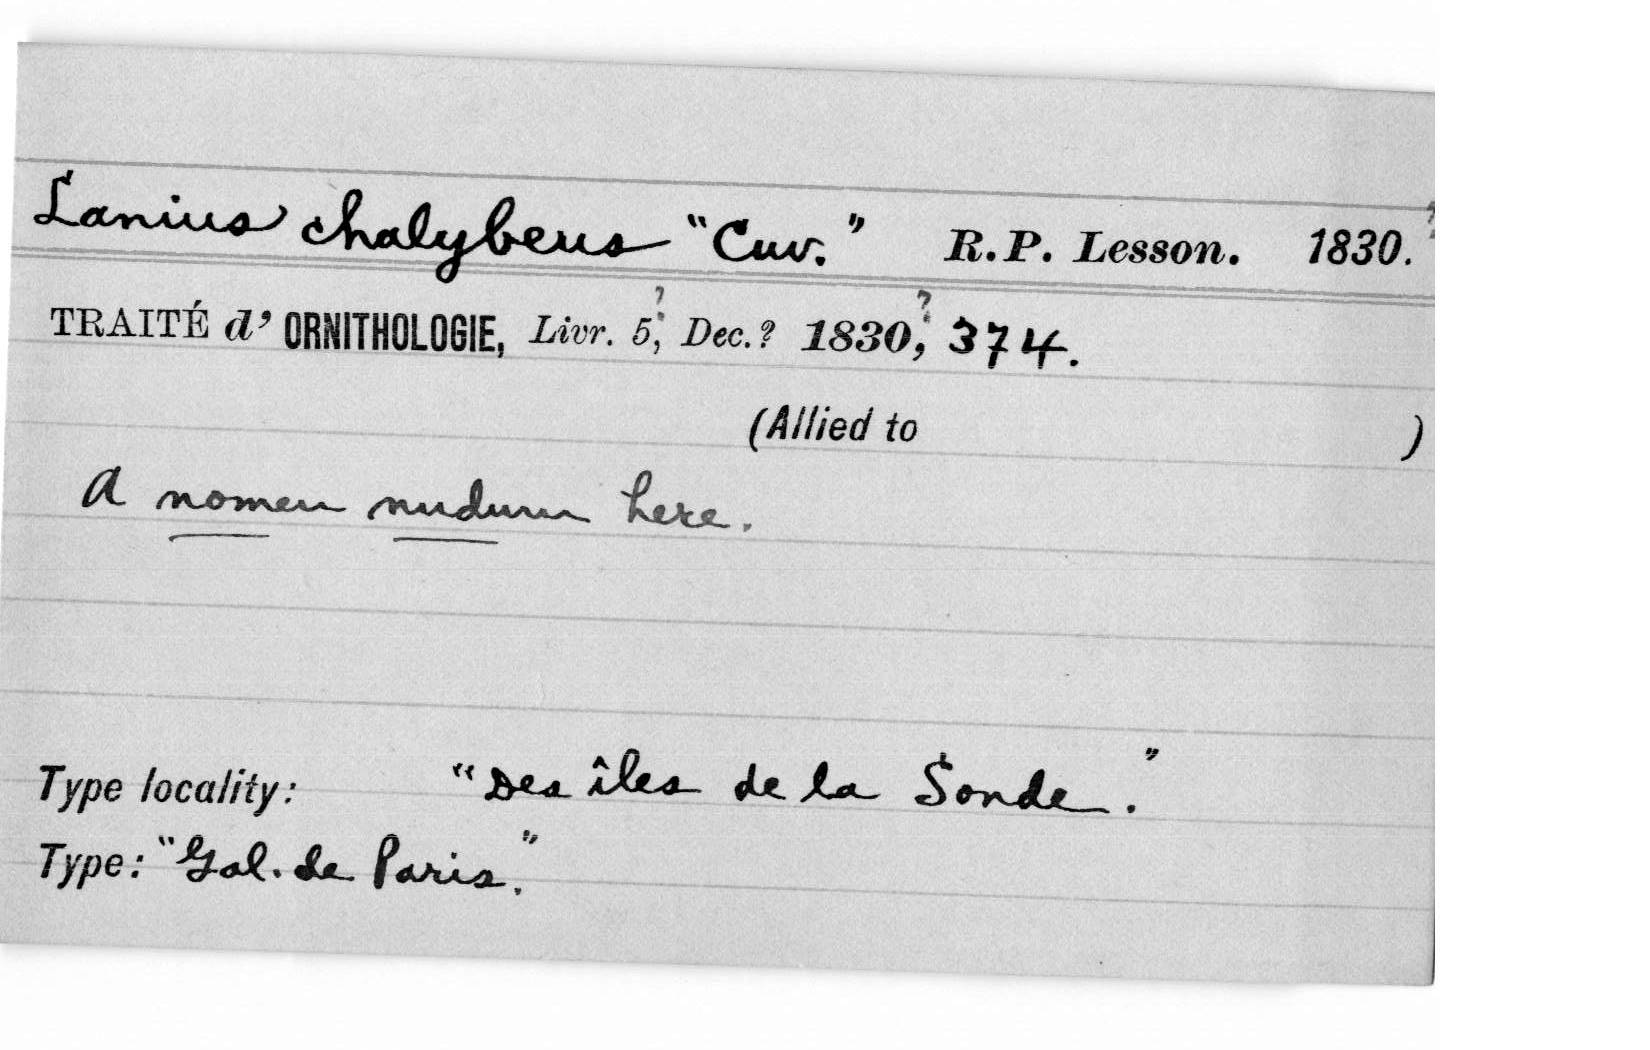 Lanius chalybeus "Cuv." R.P. Lesson. 1830.?
TRAITÉ d' ORNITHOLOGIE, Livr. 5,? Dec.? 1830,? 374.
(Allied to )
A nomen nudum here.
Type locality: "Des îles de la Sonde."
Type: "Gal. de Paris."